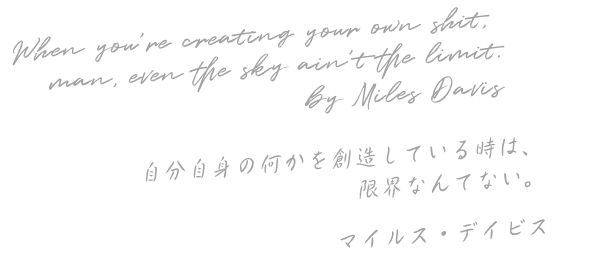 When you're creating your own shit,
man, even the sky ain't the limit.
By Miles Davis
自分自身の何かを創造している時は、
限界なんてない。
マイルス・デイビス